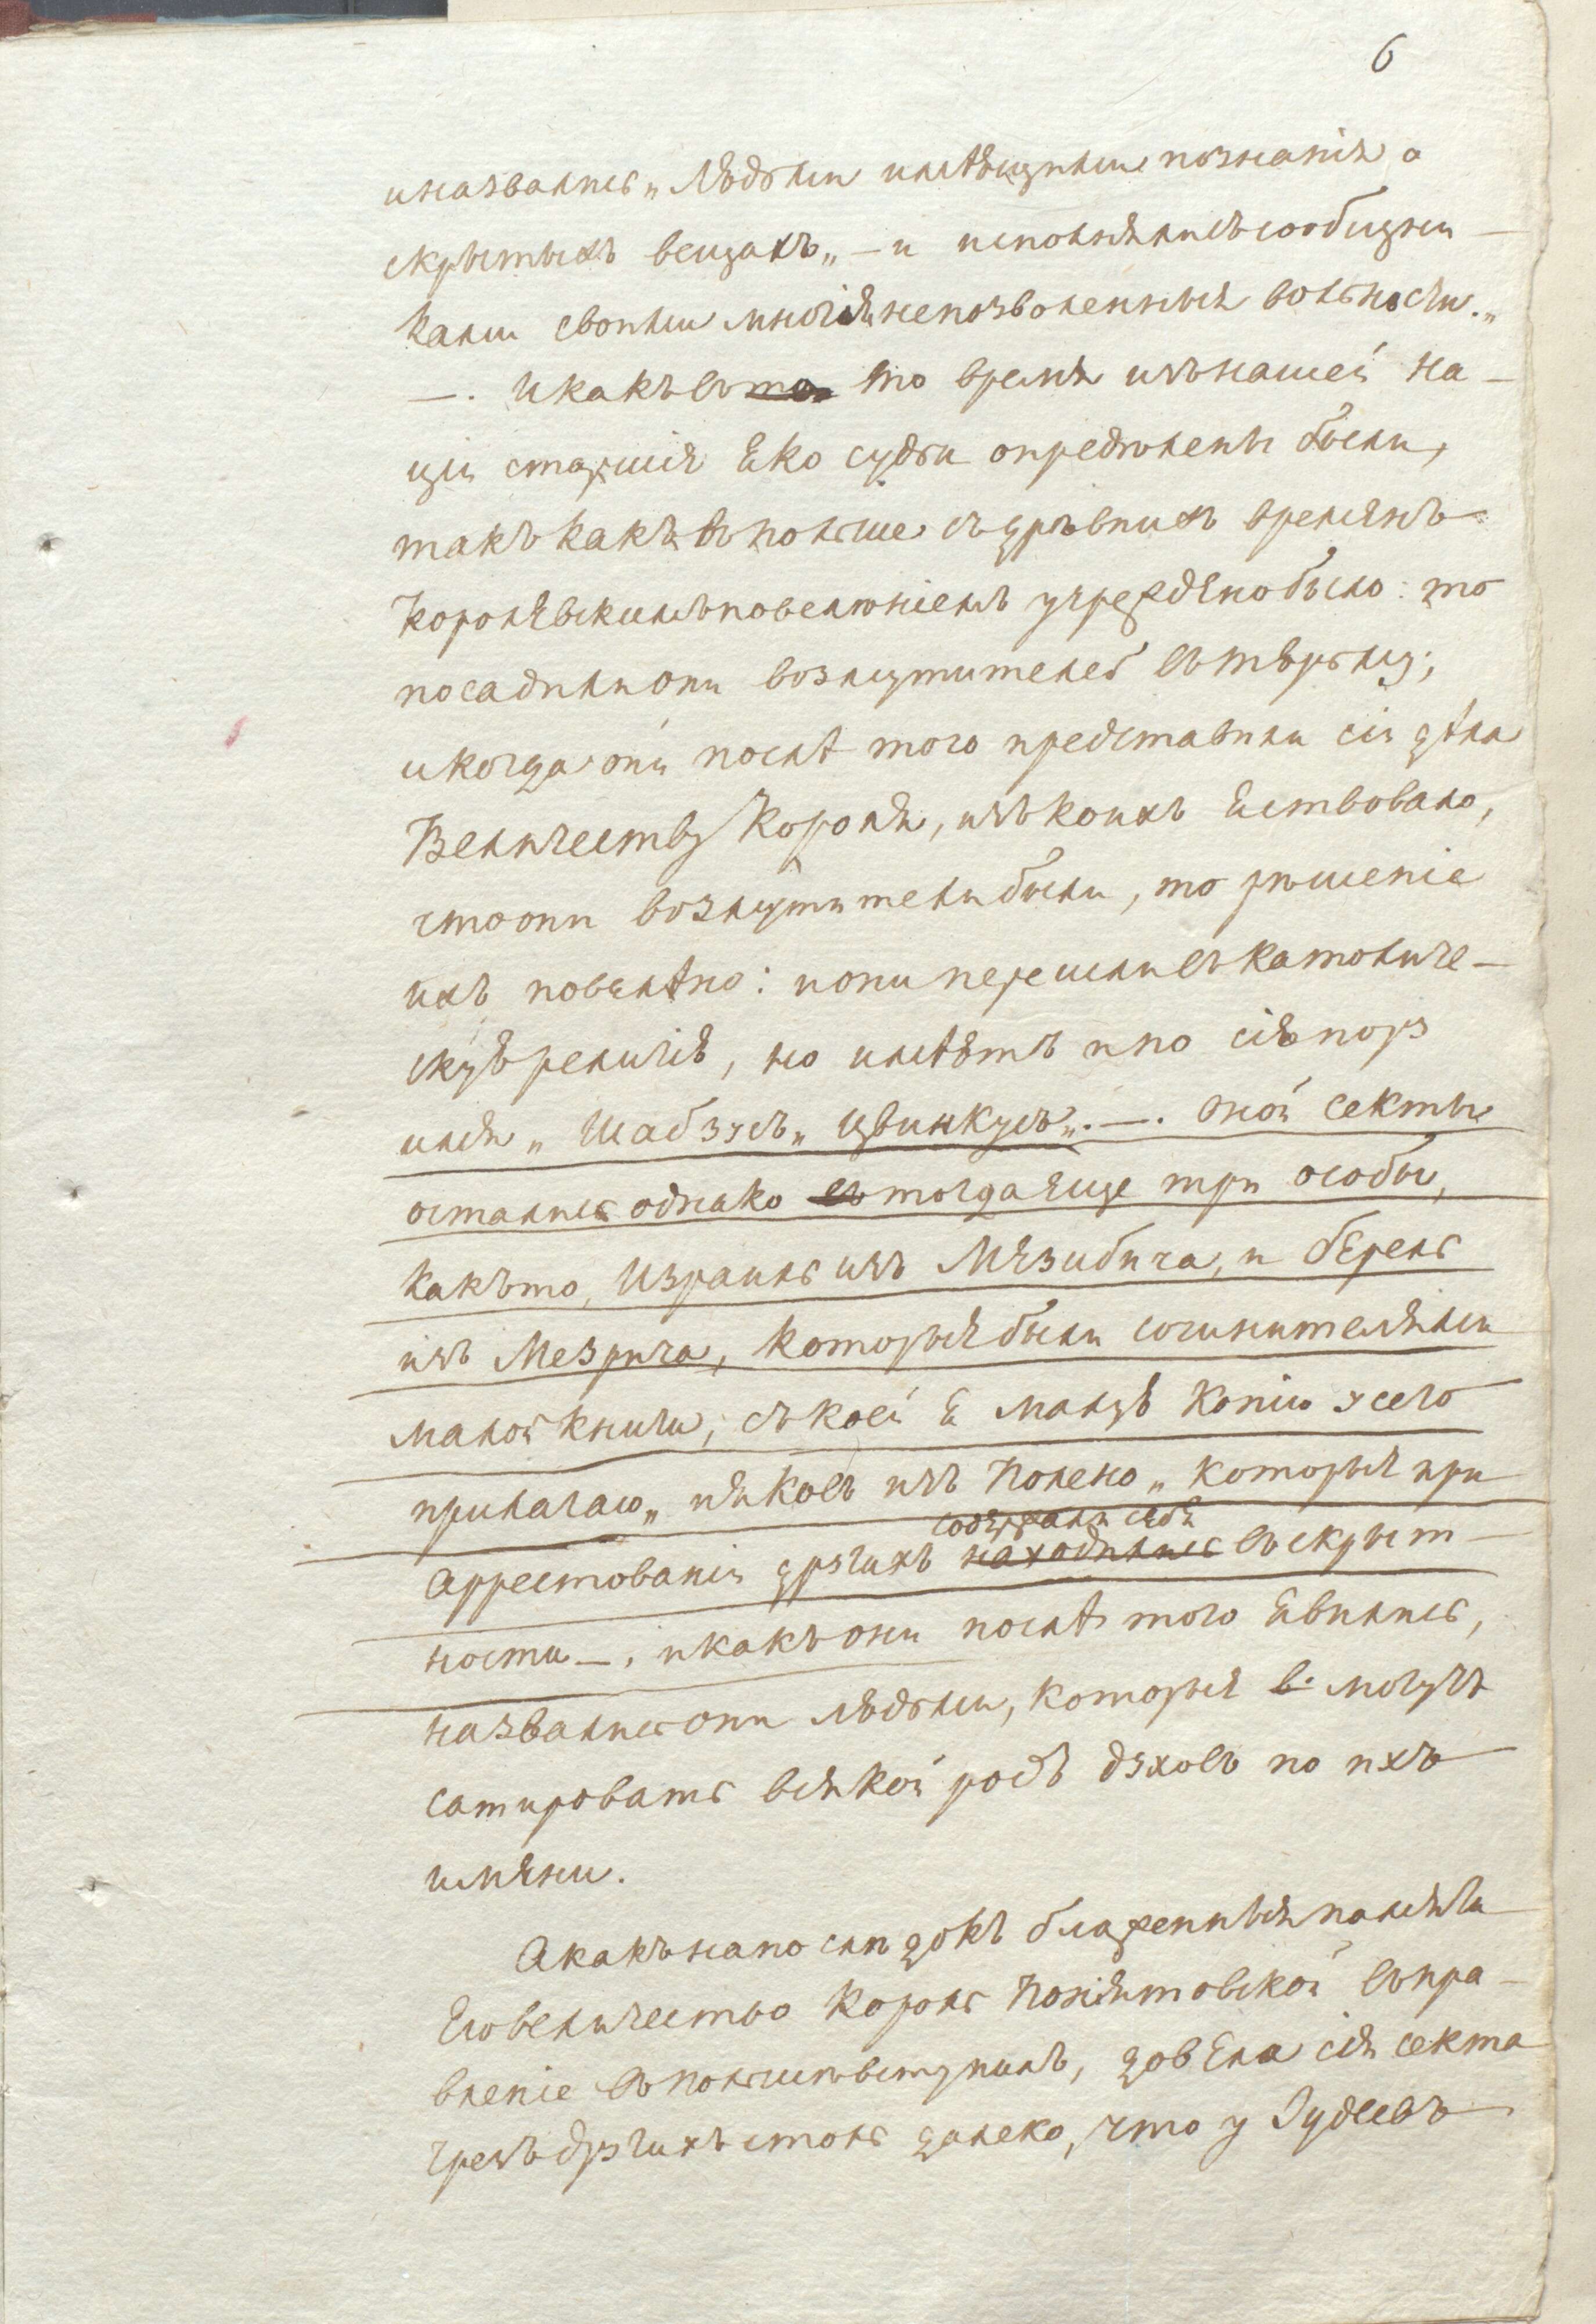 6
иназвались „Людьми имѣющими познанія о
скрытыхъ вещахъ„ – и исполняли съ сообщни–
ками своими многія непозволенныя вольности.„
–. И какъ въ то время изъ нашей На–
ціи старшія яко судьи опредѣлены были,
такъ какъ въ польше съ древнихъ временъ
королевскимъ повелѣніемъ учреждено было: то
посадили они возмутителей въ тюрьму;
и когда они послѣ того представили сіи дѣла
Величеству Короля, изъ коихъ явствовало,
что они возмутители были, то рѣшеніе
ихъ повелѣно: и они перешли въ католиче–
скую религію, но имѣютъ и по сію пору
имя „Шабзусъ„ цвинкусъ„.–. Оной секты
остались однако въ тогда яще три особы,
какъ то, Израиль изъ Мязибича, и беръ
изъ Мезрича, которыя были сочинителями
малой книги, съ коей я малую копію у сего
прилагаю„ и яковъ изъ Полено„ которыя при
Аррестованіи другихъ находились содержали себя въ скрыт–
ности–, и какъ они послѣ того явились,
назвались они людьми, которыя в. могутъ
сатировать всякой родъ духовъ по ихъ
имяни.
А какъ напослѣдокъ блаженныя памяти
Его величество Король Понятовской въ пра–
вленіе въ польше вступилъ, довела сія секта
чрезъ другихъ столь далеко, что у Іудеевъ